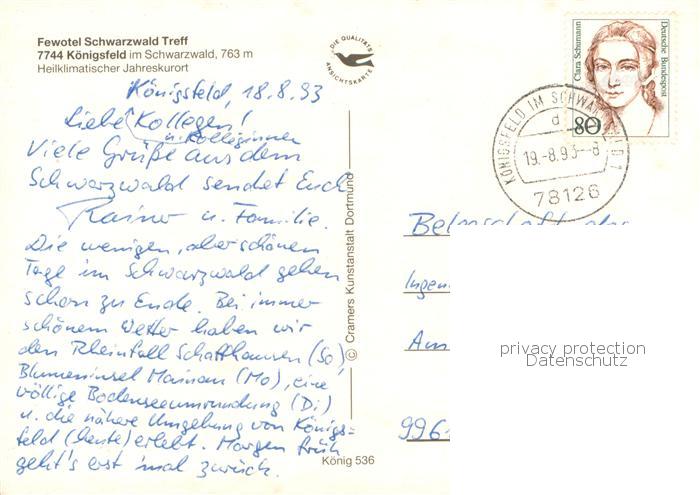 Fewotel Schwarzwald Treff
7744 Königsfeld im Schwarzwald, 763 m
Heilklimatischer Jahreskurort
DIE QUALITÄTS
ANSICHTSKARTE
Clara Schumann
Deutsche Bundespost
80
KÖNIGSFELD IM SCHWARZWALD 1
d
19.-8.93-8
78126
Königsfeld, 18.8.93
Liebe Kollegen!
u. Kolleginnen
Viele Grüße aus dem
Schwarzwald sendet Euch
Rainer u. Familie.
Die wenigen, aber schönen
Tage im Schwarzwald gehen
schon zu Ende. Bei immer
schönem Wetter haben wir
den Rheinfall Schaffhausen (So),
Blumeninsel Mainau (Mo), eine
völlige Bodenseeumrundung (Di)
u. die nähere Umgebung von Königs=
feld (heute) erlebt. Morgen früh
geht's erst 'mal zurück.
© Cramers Kunstanstalt Dortmund
König 536
Ingen
Am
996
privacy protection
Datenschutz